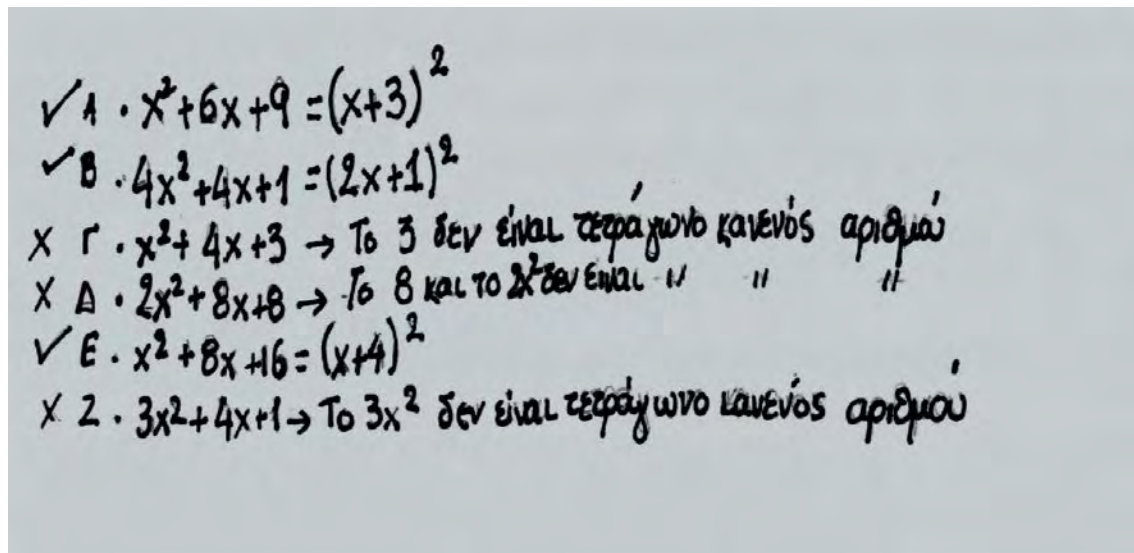 ✓ Α · x²+6x+9 = (x+3)²
✓ Β · 4x²+4x+1 = (2x+1)²
X Γ · x²+4x+3 → Το 3 δεν είναι τετράγωνο κανενός αριθμού
X Δ · 2x²+8x+8 → Το 8 και το 2x² δεν είναι " " "
✓ Ε · x²+8x+16 = (x+4)²
X Ζ · 3x²+4x+1 → Το 3x² δεν είναι τετράγωνο κανενός αριθμού